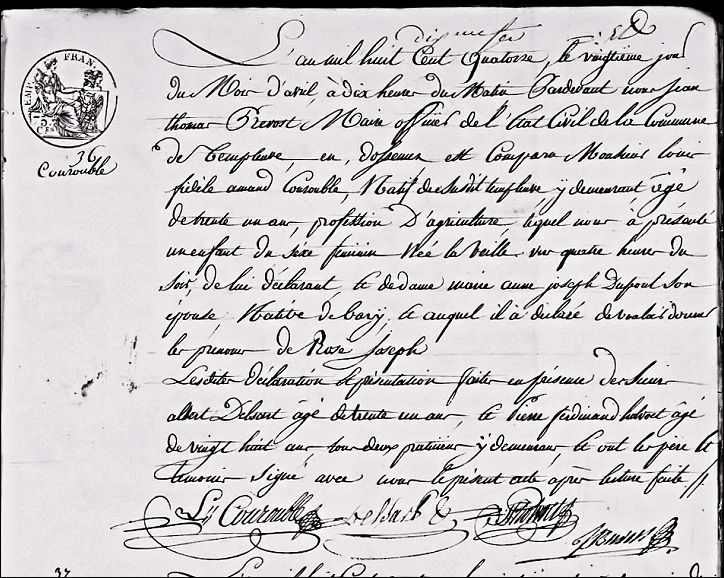 EMP. FRAN.
36
Courouble
L'an mil huit Cent Quatorze, le vingtieme jour
du Mois d'avril, à dix heures du Matin Pardevant nous jean
thomas Prevost Maire officier de l'état Civil de la Commune
de Templeuve, en, dossemer est Comparu Monsieur louis
fidèle amand Courouble, Natif de susdit templeuve y demeurant âgé
de trente un ans, profession D'agriculteur, lequel nous à présenté
un enfant du sèxe feminin Née la Veille vers quatre heures du
Soir, de lui déclarant, et de dame marie anne joseph Dupont Son
épouse Native de bary, et auquel il à déclaré de vouloir donner
les prénoms de Rose Joseph
Lesdites déclaration et présentation faites en présence de sieur
albert Delsart âgé de trente un ans, et Pierre ferdinand âgé
de vingt huit ans, tous deux y demeurant, et ont les père et
temoins signé avec nous le présent acte après lecture faite
Courouble Delsart
37